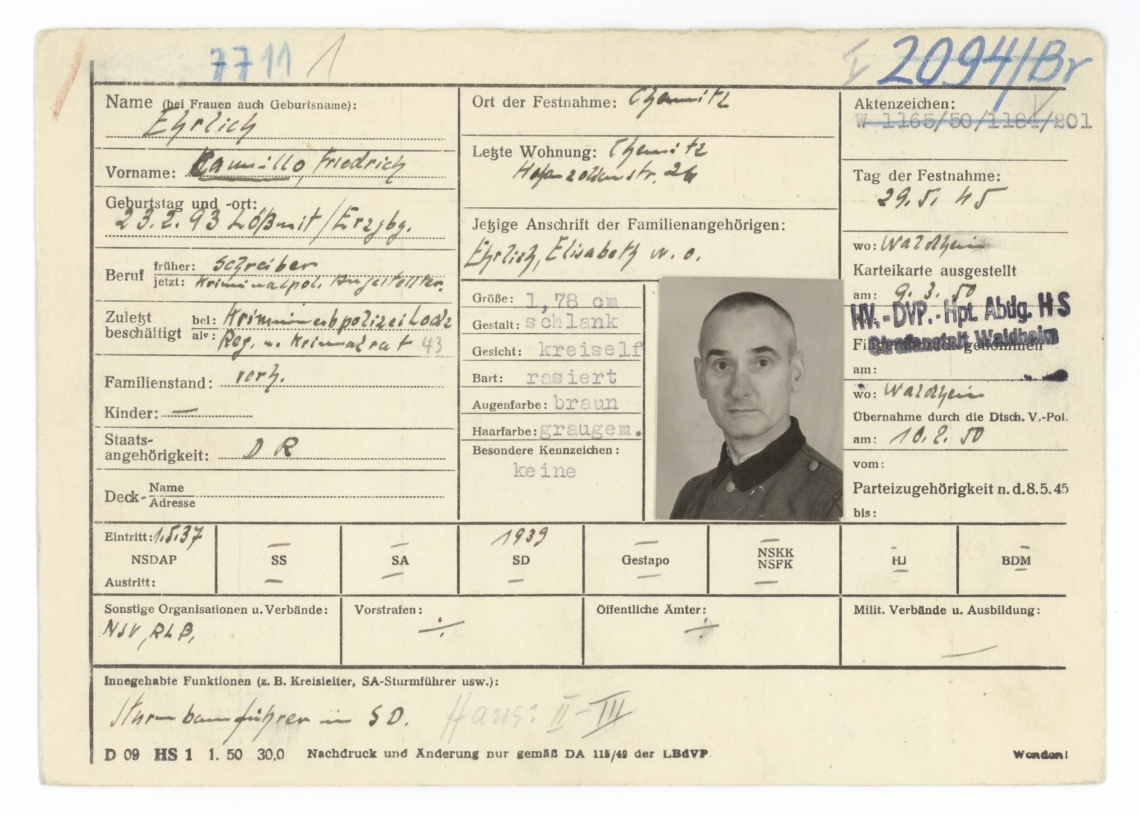 7711 1
2094/Br
Name (bei Frauen auch Geburtsname):
Ehrlich
Vorname: Kamillo, Friedrich
Geburtstag und -ort:
23.2.93 Lößnit/Erzgbg.
Beruf früher: Schreiber
jetzt: Kriminalpol. Angestellter.
Zuletzt beschäftigt bei: Kriminalpolizei Lodz
als: Reg. u. Kriminalrat 43
Familienstand: verh.
Kinder: —
Staats-
angehörigkeit: D R
Deck- Name
Adresse
Ort der Festnahme: Chemnitz
Letzte Wohnung: Chemnitz
Hohenzollernstr. 26
Jetzige Anschrift der Familienangehörigen:
Ehrlich, Elisabeth w. o.
Größe: 1,78 cm
Gestalt: schlank
Gesicht: kreiself
Bart: rasiert
Augenfarbe: braun
Haarfarbe: graugem.
Besondere Kennzeichen:
keine
Aktenzeichen:
W 1165/50/1184/201
Tag der Festnahme:
29.5.45
wo: Waldheim
Karteikarte ausgestellt
am: 9.3.50
HV.-DVP.-Hpt. Abdg. HS
Strafanstalt Waldheim
am:
wo: Waldheim
Übernahme durch die Dtsch. V.-Pol.
am: 10.2.50
vom:
Parteizugehörigkeit n. d. 8.5.45
bis:
Eintritt: 1.5.37 — — 1939 — — - —
NSDAP SS SA SD Gestapo NSKK NSFK HJ BDM
Austritt: — — — — — —
Sonstige Organisationen u. Verbände:
NSV, RLB,
Vorstrafen:
÷
Öffentliche Ämter:
÷
Milit. Verbände u. Ausbildung:
—
Innegehabte Funktionen (z. B. Kreisleiter, SA-Sturmführer usw.):
Sturmbannführer im SD. Haus: II-III
D 09 HS 1 1. 50 30,0 Nachdruck und Änderung nur gemäß DA 115/49 der LBdVP
Wenden!